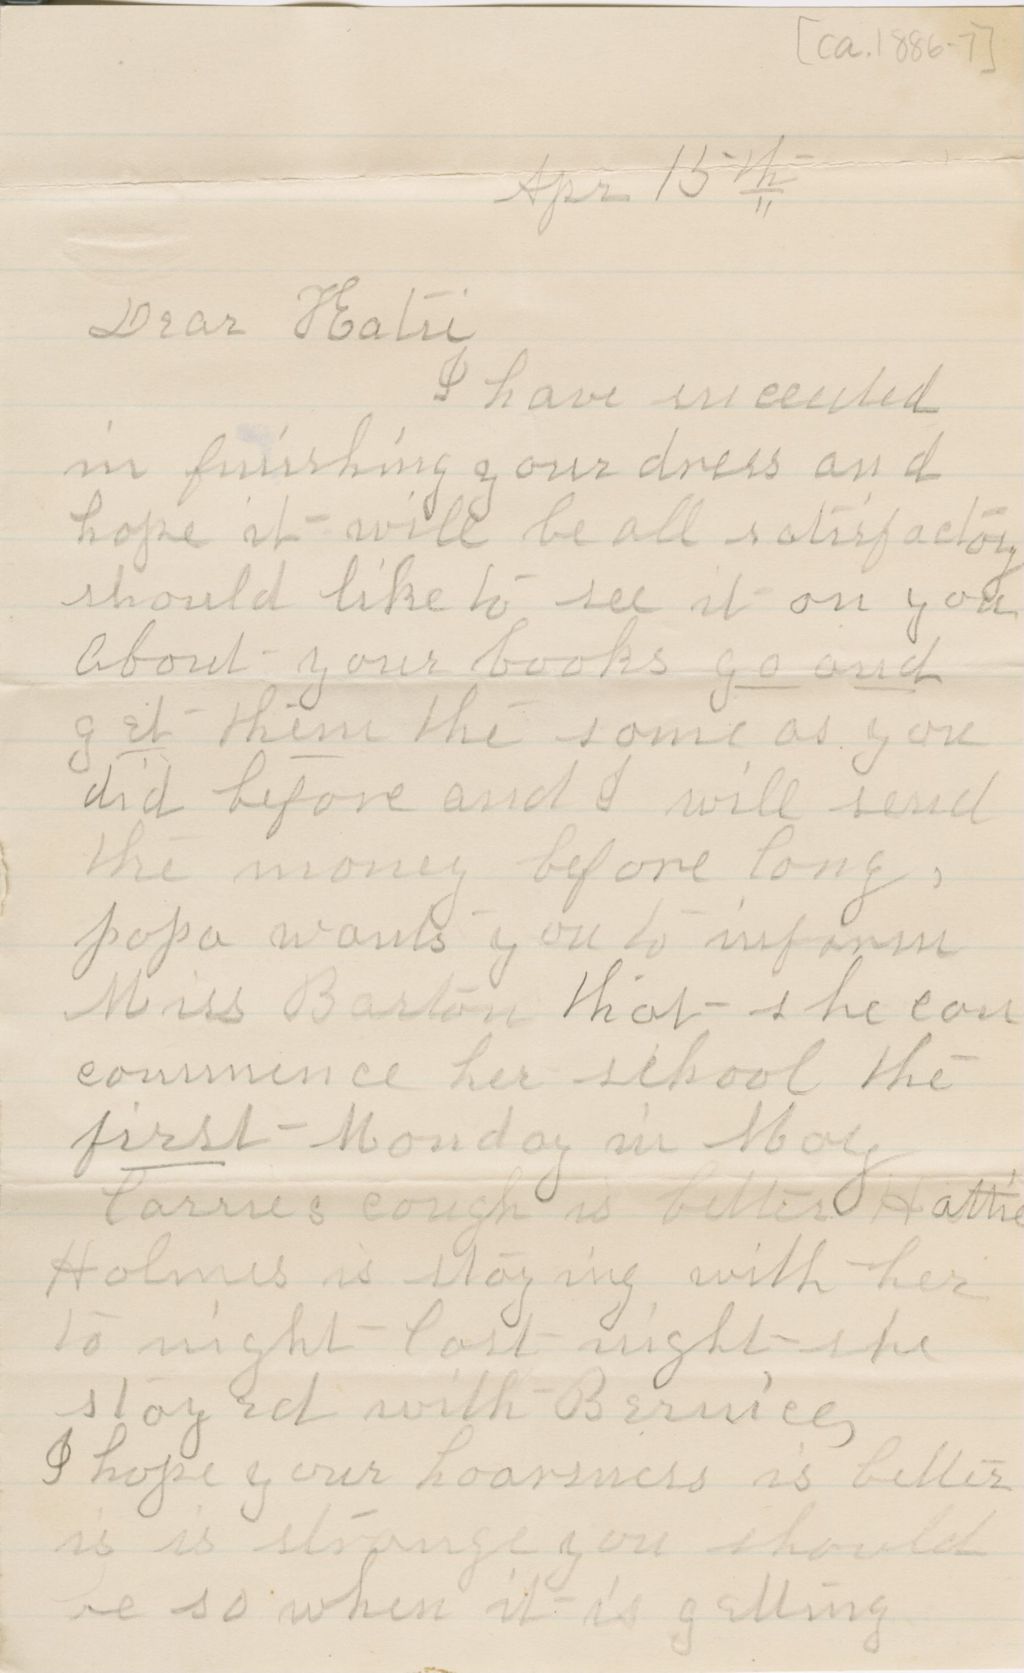 [ca. 1886-7]
Apr 15th
Dear Hatti
I have succeeded
in finishing your dress and
hope it will be all satisfactory
should like to see it on you
About your books go and
get them the same as you
did before and I will send
the money before long,
papa wants you to inform
Miss Barton that she can
commence her school the
first Monday in May
Carries cough is better Hattie
Holmes is staying with her
to night last night she
stayed with Bernice,
I hope your hoarsness is better
is is strange you should
be so when it is getting